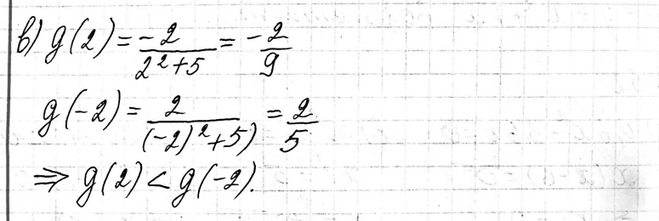 в) g(2) = -2/(2²+5) = -2/9
g(-2) = 2/((-2)²+5) = 2/5
⇒ g(2) < g(-2).